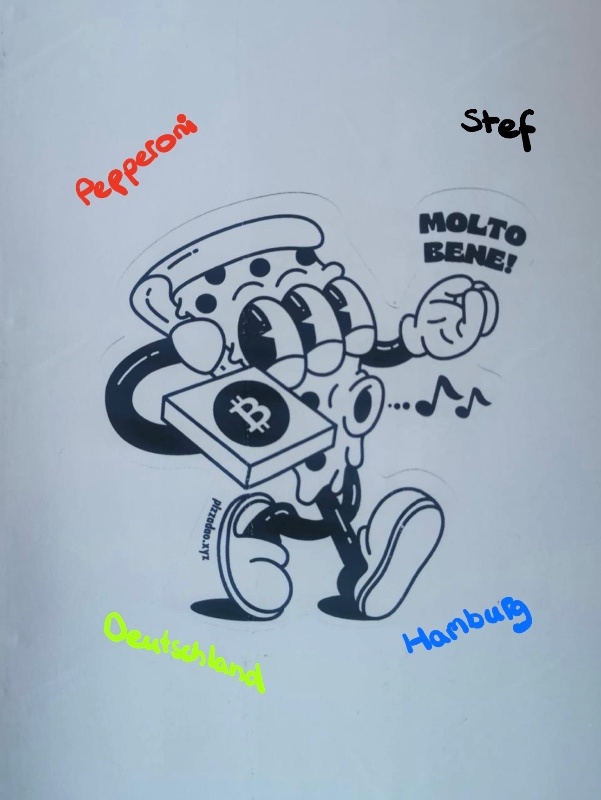 Pepperoni
Stef
MOLTO
BENE!
pizzadao.xyz
Deutschland
Hamburg